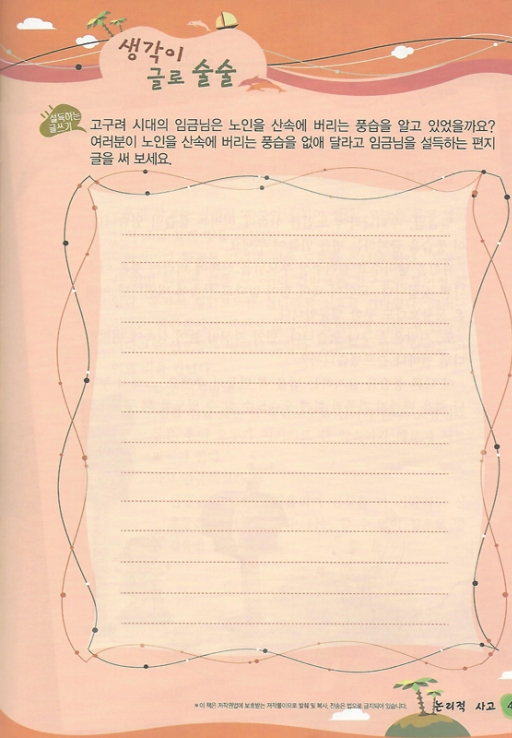 생각이
글로 술술
설득하는
글쓰기
고구려 시대의 임금님은 노인을 산속에 버리는 풍습을 알고 있었을까요?
여러분이 노인을 산속에 버리는 풍습을 없애 달라고 임금님을 설득하는 편지
글을 써 보세요.
* 이 책은 저작권법에 보호받는 저작물이므로 발췌 및 복사, 전송은 법으로 금지되어 있습니다.
논리적 사고 4